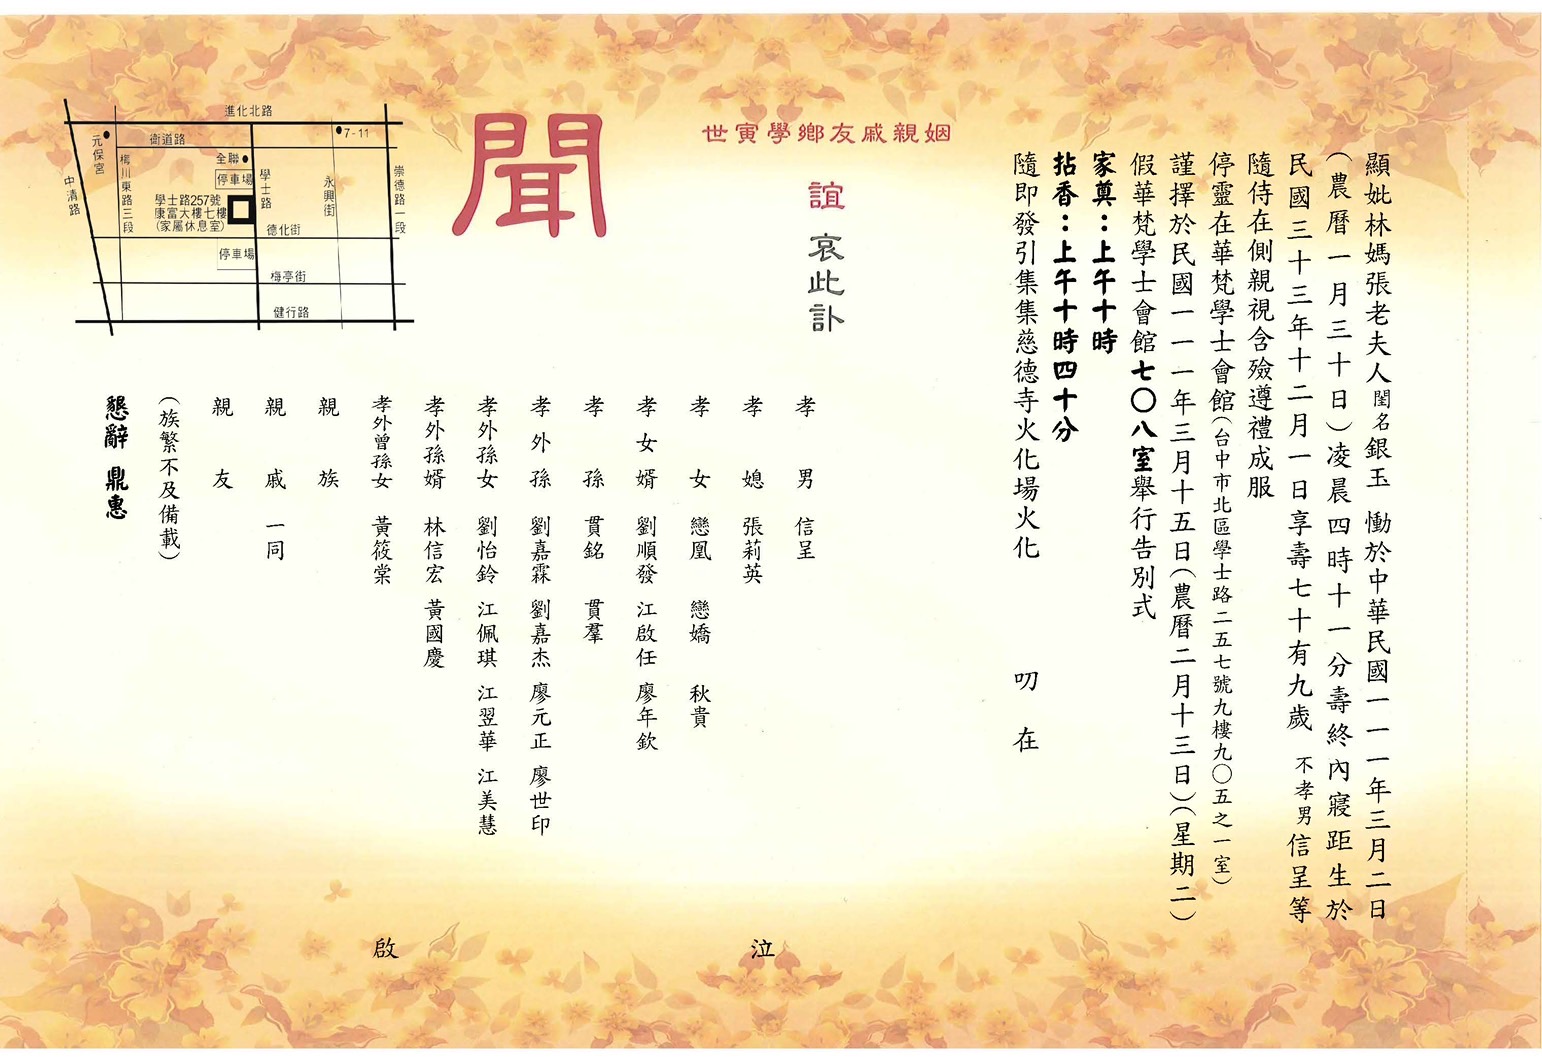 顯妣林媽張老夫人閨名銀玉 慟於中華民國一一一年三月二日
(農曆一月三十日)凌晨四時十一分壽終內寢距生於
民國三十三年十二月一日享壽七十有九歲 不孝男信呈等
隨侍在側親視含殮遵禮成服
停靈在華梵學士會館(台中市北區學士路二五七號九樓九〇五之一室)
謹擇於民國一一一年三月十五日(農曆二月十三日)(星期二)
假華梵學士會館七〇八室舉行告別式
家奠：上午十時
拈香：上午十時四十分
隨即發引集集慈德寺火化場火化 叨在
姻親戚友鄉學寅世
誼 哀此訃
聞
孝男 信呈
孝媳 張莉英
孝女 戀凰 戀嬌 秋貴
孝女婿 劉順發 江啟任 廖年欽
孝孫 貫銘 貫羣
孝外孫 劉嘉霖 劉嘉杰 廖元正 廖世印
孝外孫女 劉怡鈴 江佩琪 江翌華 江美慧
孝外孫婿 林信宏 黃國慶
孝外曾孫女 黃筱棠
泣
親族
親戚 一同
親友
啟
(族繁不及備載)
懇辭 鼎惠
進化北路
元保宮
衛道路
7-11
全聯
停車場
學士路257號
康富大樓七樓
(家屬休息室)
停車場
中清路
梅川東路三段
學士路
永興街
崇德路一段
德化街
梅亭街
健行路